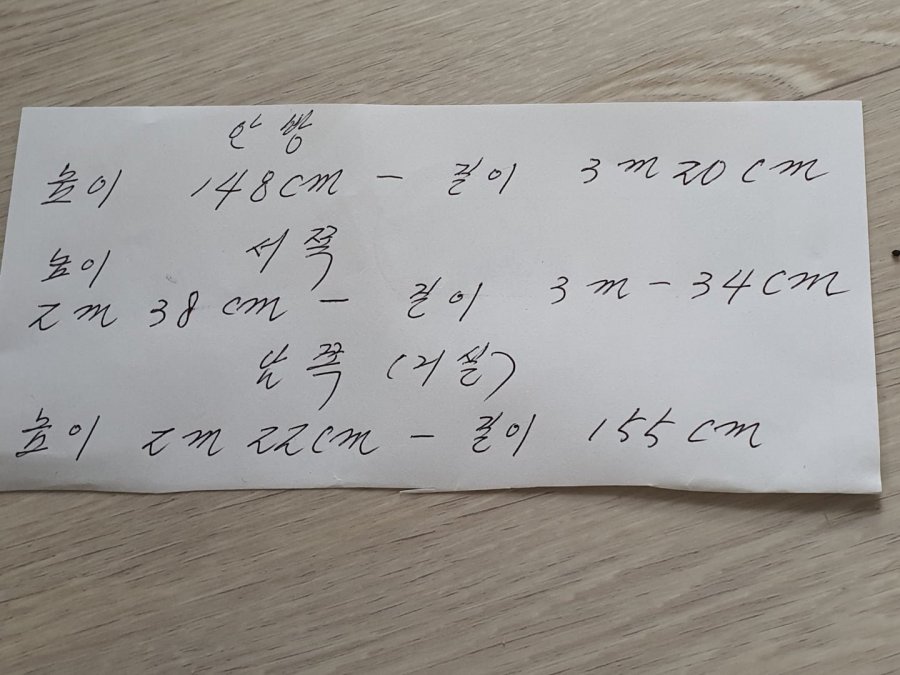 안방
높이 148cm - 길이 3m 20cm
서쪽
높이
2m 38cm - 길이 3m - 34cm
남쪽 (거실)
높이 2m 22cm - 길이 155cm